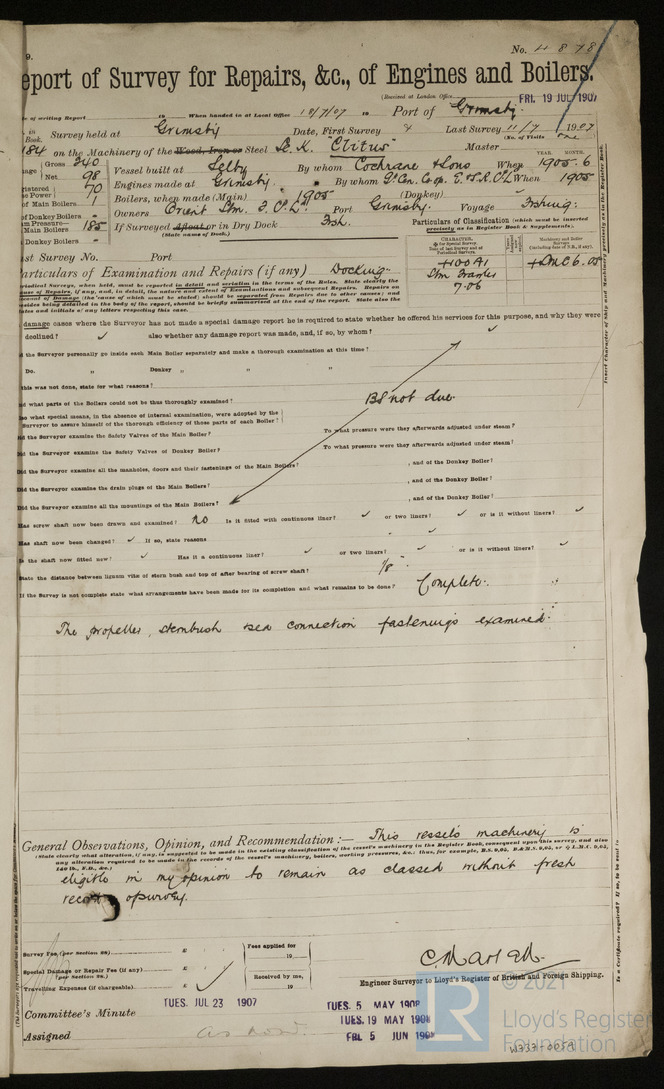 9.
No. 4878
eport of Survey for Repairs, &c., of Engines and Boilers.
(Received at London Office FRI. 19 JUL 1907
te of writing Report 19 When handed in at Local Office 18/7/07 19 Port of Grimsby
in Book. Survey held at Grimsby Date, First Survey & Last Survey 11/7 1907
(No. of Visits one)
184 on the Machinery of the Wood, Iron or Steel S. K. "Clitus" Master
Gross 240 Vessel built at Selby By whom Cochrane & Sons When 1905-6
YEAR. MONTH.
Net 98
Engines made at Grimsby By whom Gt Cen. Co op. E. & S. R. Co Ld When 1905
70
of Main Boilers 1 Boilers, when made (Main) 1905 (Donkey)
of Donkey Boilers - Owners Orient Stm. F. Co Ld Port Grimsby. Voyage Fishing:
Main Boilers 185 If Surveyed Afloat or in Dry Dock Fish.
(State name of Dock.)
Donkey Boilers -
Particulars of Classification (which must be inserted precisely as in Register Book & Supplements).
CHARACTER.
Machinery and Boiler Surveys
+100A1
Stm Trawler
7.06
+LMC 6.05
st Survey No. Port
articulars of Examination and Repairs (if any) Docking
damage cases where the Surveyor has not made a special damage report he is required to state whether he offered his services for this purpose, and why they were
declined? ✓ also whether any damage report was made, and, if so, by whom? ✓
the Surveyor personally go inside each Main Boiler separately and make a thorough examination at this time?
Do. „ Donkey „ „ „
this was not done, state for what reasons?
what parts of the Boilers could not be thoroughly examined? BS not due
what special means, in the absence of internal examination, were adopted by the
Surveyor to assure himself of the thorough efficiency of those parts of each Boiler?
the Surveyor examine the Safety Valves of the Main Boiler? To what pressure were they afterwards adjusted under steam?
Did the Surveyor examine the Safety Valves of Donkey Boiler? To what pressure were they afterwards adjusted under steam?
Did the Surveyor examine all the manholes, doors and their fastenings of the Main Boilers? , and of the Donkey Boiler?
Did the Surveyor examine the drain plugs of the Main Boilers? , and of the Donkey Boiler?
Did the Surveyor examine all the mountings of the Main Boilers? , and of the Donkey Boiler?
Has screw shaft now been drawn and examined? no Is it fitted with continuous liner? ✓ or two liners? ✓ or is it without liners? ✓
Has shaft now been changed? ✓ If so, state reasons
Is the shaft now fitted new? ✓ Has it a continuous liner? ✓ or two liners? ✓ or is it without liners? ✓
State the distance between lignum vitæ of stern bush and top of after bearing of screw shaft? 1/8"
If the Survey is not complete state what arrangements have been made for its completion and what remains to be done? Complete:
The propeller, sternbush sea connection fastenings examined:
General Observations, Opinion, and Recommendation:— This vessel's machinery is
(State clearly what alteration, if any, is suggested to be made in the existing classification of the vessel's machinery in the Register Book, consequent upon this survey, and also
any alteration required to be made in the records of the vessel's machinery, boilers, working pressures, &c.; thus, for example, B.S. 9,05, B.&M.S. 9,05, or L.M.C. 9,05,
140 lb., F.D., &c.)
eligible in my opinion to remain as classed without fresh
record of survey.
Survey Fee (per Section 28) £
Special Damage or Repair Fee (if any) £
(per Section 28.)
Travelling Expenses (if chargeable) £
Fees applied for
19
Received by me,
19
Engineer Surveyor to Lloyd's Register of British and Foreign Shipping.
Committee's Minute TUES. JUL 23 1907
TUES. 5 MAY 1908
TUES. 19 MAY 1908
FRI. 5 JUN 1908
Assigned as now
© 2021
LR
Lloyd's Register
Foundation
W333-0059